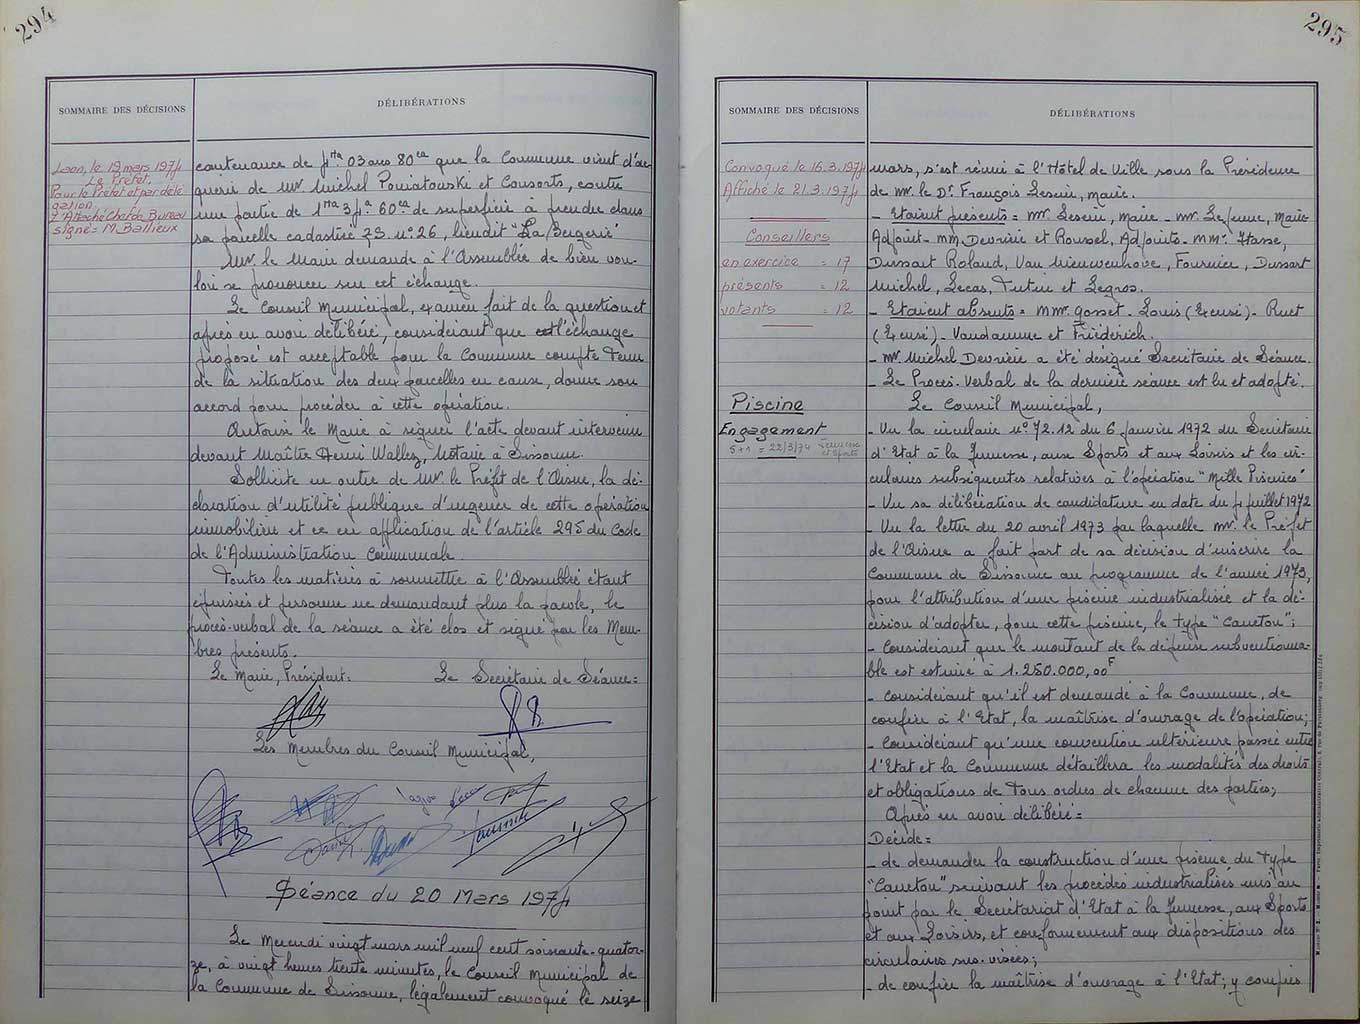 294
SOMMAIRE DES DÉCISIONS
DÉLIBÉRATIONS
Laon, le 19 mars 1974
Le Préfet,
Pour le Préfet et par délé-
gation
l'Attaché Chef de Bureau
signé = M. Ballieux
contenance de 1ha 03 ares 80ca que la Commune vient d'ac-
quérir de Mr Michel Poniatowski et Consorts, contre
une partie de 1ha 34a 60ca de superficie à prendre dans
sa parcelle cadastrée ZS n° 26, lieudit "La Bergerie"
Mr. le Maire demande à l'Assemblée de bien vou-
loir se prononcer sur cet échange.
Le Conseil Municipal, examen fait de la question et
après en avoir délibéré, considérant que l'échange
proposé est acceptable pour la Commune compte tenu
de la situation des deux parcelles en cause, donne son
accord pour procéder à cette opération.
Autorise le Maire à signer l'acte devant intervenir
devant Maître Henri Wallez, Notaire à Sissonne.
Sollicite en outre de Mr. le Préfet de l'Aisne, la dé-
claration d'utilité publique d'urgence de cette opération
immobilière et ce en application de l'article 295 du Code
de l'Administration Communale.
Toutes les matières à soumettre à l'Assemblée étant
épuisées et personne ne demandant plus la parole, le
procès-verbal de la séance a été clos et signé par les Mem-
bres présents.
Le Maire, Président: Le Secrétaire de Séance=
Les Membres du Conseil Municipal,
Séance du 20 Mars 1974
Le Mercredi vingt mars mil neuf cent soixante-quator-
ze, à vingt heures trente minutes, le Conseil Municipal de
la Commune de Sissonne, légalement convoqué le seize
295
SOMMAIRE DES DÉCISIONS
DÉLIBÉRATIONS
Convoqué le 16.3.1974
Affiché le 21.3.1974
Conseillers
en exercice = 17
présents = 12
votants = 12
Piscine
Engagement
5+1 = 22/3/74 Jeunesse
et Sports
mars, s'est réuni à l'Hôtel de Ville sous la Présidence
de Mr. le Dr François Leseur, Maire.
- Etaient présents = Mr. Leseur, Maire - Mr. Lejeune, Maire
Adjoint - MM. Devrière et Roussel, Adjoints - MMrs. Hasse,
Dussart Roland, Van Nieuwenhove, Fournier, Dussart
Michel, Lecas, Tutin et Legros.
- Etaient absents = MMr. Gosset - Louis (Excusé) - Ruet
(Excusé) - Vaudamme et Friederich.
- Mr. Michel Devrière a été désigné Secrétaire de Séance.
- Le Procès-Verbal de la dernière séance est lu et adopté.
Le Conseil Municipal,
- Vu la circulaire n° 72.12 du 6 Janvier 1972 du Secrétaire
d'Etat à la Jeunesse, aux Sports et aux Loisirs et les cir-
culaires subséquentes relatives à l'opération "Mille Piscines"
- Vu sa délibération de candidature en date du 4 juillet 1972
- Vu la lettre du 20 avril 1973 par laquelle Mr. le Préfet
de l'Aisne a fait part de sa décision d'inscrire la
Commune de Sissonne au programme de l'année 1973,
pour l'attribution d'une piscine industrialisée et la dé-
cision d'adopter, pour cette piscine, le type "Caneton";
- Considérant que le montant de la dépense subventionna-
ble est estimé à 1.250.000,00F
- Considérant qu'il est demandé à la Commune, de
confier à l'Etat, la maîtrise d'ouvrage de l'opération;
- Considérant qu'une convention ultérieure passée entre
l'Etat et la Commune détaillera les modalités des droits
et obligations de tous ordres de chacune des parties;
Après en avoir délibéré =
Décide =
- de demander la construction d'une piscine du type
"Caneton" suivant les procédés industrialisés mis au
point par le Secrétariat d'Etat à la Jeunesse, aux Sports
et aux Loisirs, et conformément aux dispositions des
circulaires sus-visées;
- de confier la maîtrise d'ouvrage à l'Etat; y compris